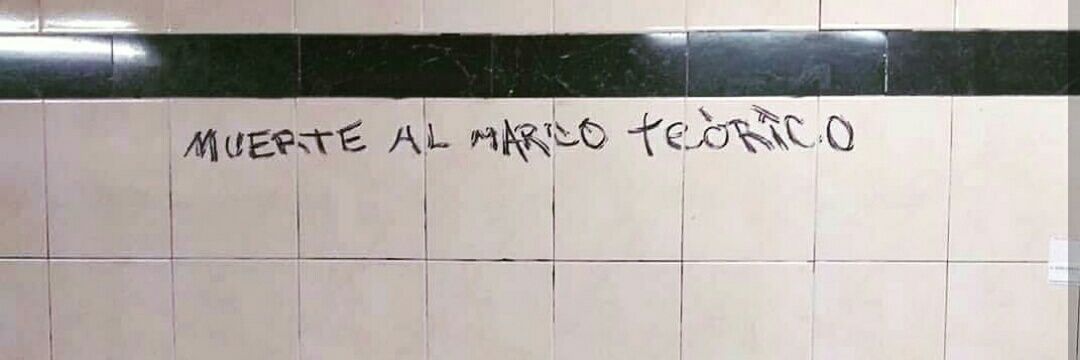 MUERTE AL MARCO TEÒRÌCO